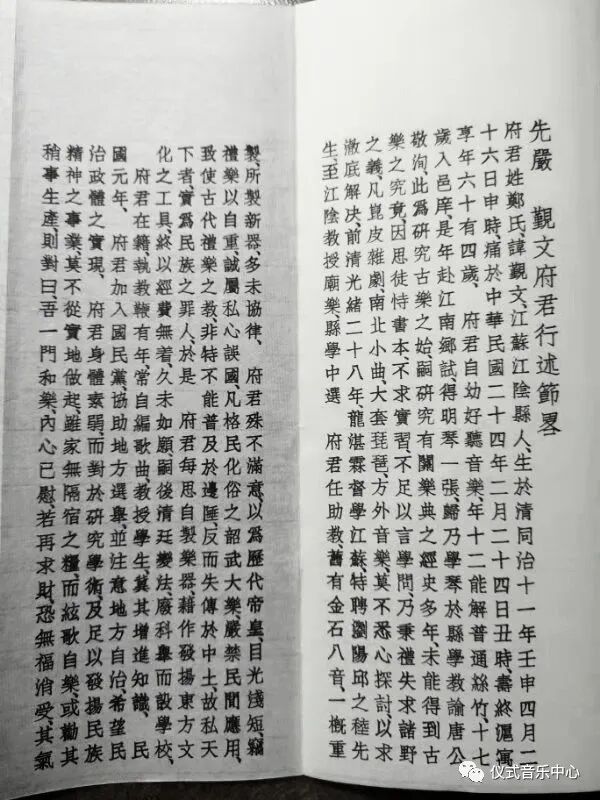 先嚴　覲文府君行述節畧
府君姓鄭氏、諱覲文、江蘇江陰縣人、生於清同治十一年壬申四月二
十六日申時、痛於中華民國二十四年二月二十四日丑時、壽終滬寓
享年六十有四歲、　府君自幼好聽音樂、年十二能解普通絲竹、十七
歲入邑庠、是年赴江南鄉試、得明琴一張、歸乃學琴於縣學教諭唐公
敬洵、此爲研究古樂之始、嗣研究有關樂典之經史多年、未能得到古
樂之究竟、因思徒恃書本、不求實習、不足以言學問、乃秉禮失求諸野
之義、凡崑皮雜劇、南北小曲、大套琵琶、方外音樂、莫不悉心探討以求
澈底解決、前清光緒二十八年、龍湛霖督學江蘇特聘瀏陽邱之稑先
生、至江陰教授廟樂、縣學中選　府君任助教、舊有金石八音、一概重
製、所製新器、多未協律、　府君殊不滿意、以爲歷代帝皇、目光淺短、竊
禮樂以自重、誠屬私心誤國、凡格民化俗之韶武大樂、嚴禁民間應用、
致使古代禮樂之教、非特不能普及於邊陲、反而失傳於中土、故私天
下者、實爲民族之罪人、於是　府君每思自製樂器、藉作發揚東方文
化之工具、終以經費無着、久未如願、嗣後清廷變法、廢科舉而設學校、
　府君在籍、執教鞭有年、常自編歌曲、教授學生、冀其增進知識、　民
國元年、　府君加入國民黨、協助地方選舉、並注意地方自治、希望民
治政體之實現、　府君身體素弱、而對於研究學術、及足以發揚民族
精神之事業、莫不從實地做起、雖家無隔宿之糧、而絃歌自樂、或勸其
稍事生產、則對曰、吾一門和樂、內心已慰、若再求財、恐無福消受、其氣
仪式音乐中心